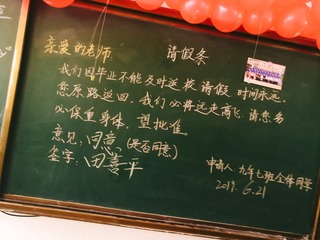 请假条
亲爱的老师:
我们因毕业不能及时返校请假,时间永远,
您原路返回,我们必将远走高飞,请您务
必保重身体,望批准。
意见:同意 (是否同意)
签字:田善平
申请人:九年七班全体同学
2019.6.21